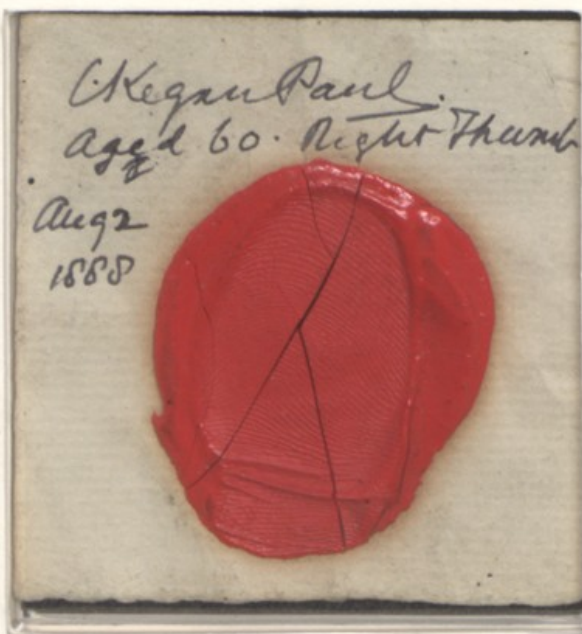 C Kegan Paul.
aged 60. Right Thumb
Aug 2
1888